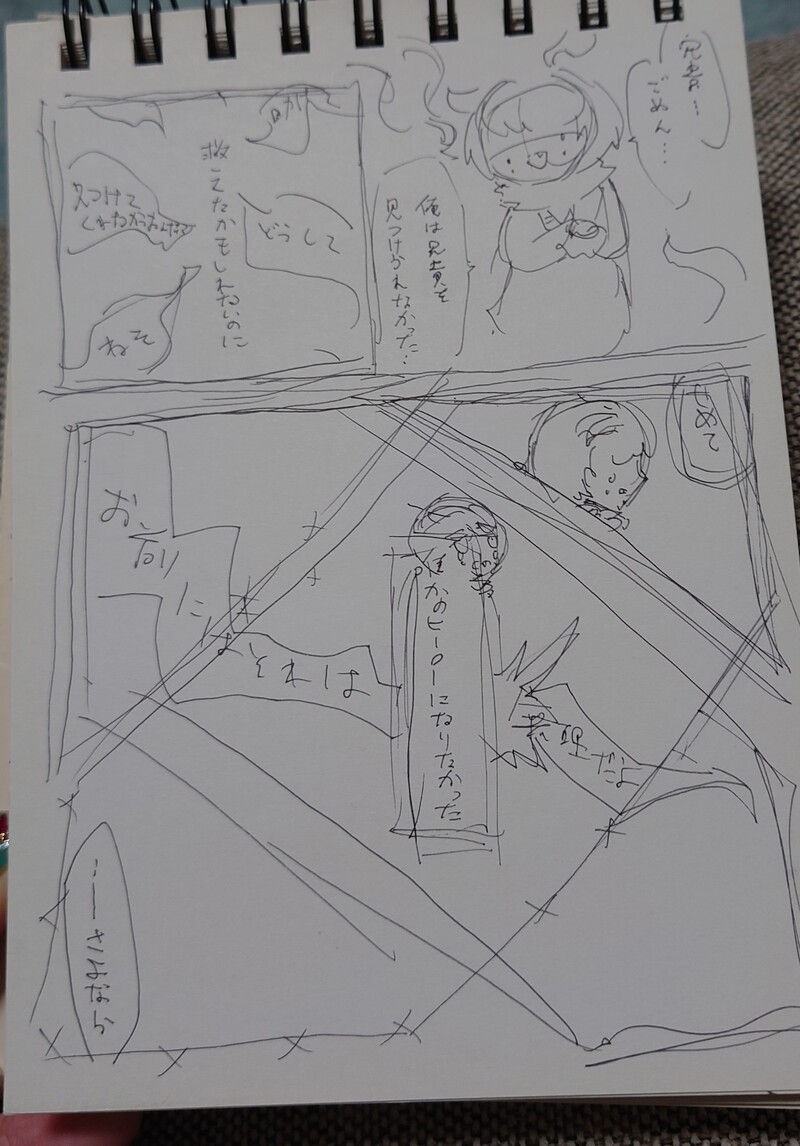 兄貴…
ごめん…
俺は兄貴を
見つけられなかった…
助けて
どうして
救えたかもしれないのに
見つけて
くれなかったんだ
ねぇ
やめて
誰かのヒーローになりたかった
お前には
それは
無理だよ
…―さよなら